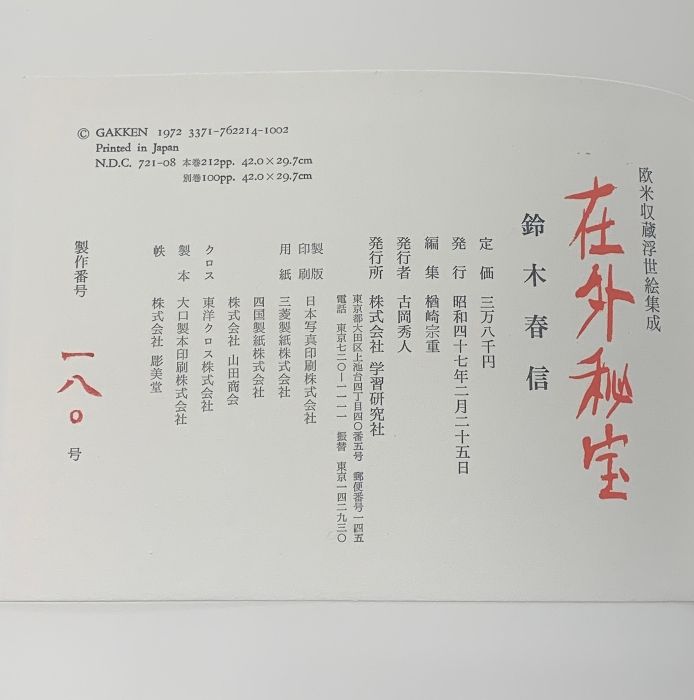 欧米収蔵浮世絵集成
在外秘宝
鈴木春信
定価 三万八千円
発行 昭和四十七年二月二十五日
編集 楢崎宗重
発行者 古岡秀人
発行所 株式会社 学習研究社
東京都大田区上池台四丁目四〇番五号 郵便番号一四五
電話 東京七二〇―一一一一 振替 東京一四二九三〇
製版
印刷 日本写真印刷株式会社
用紙 三菱製紙株式会社
四国製紙株式会社
株式会社 山田商会
クロス 東洋クロス株式会社
製本 大口製本印刷株式会社
帙 株式会社 彫美堂
製作番号 一八〇 号
© GAKKEN 1972 3371-762214-1002
Printed in Japan
N.D.C. 721-08 本巻212pp. 42.0×29.7cm
別巻100pp. 42.0×29.7cm